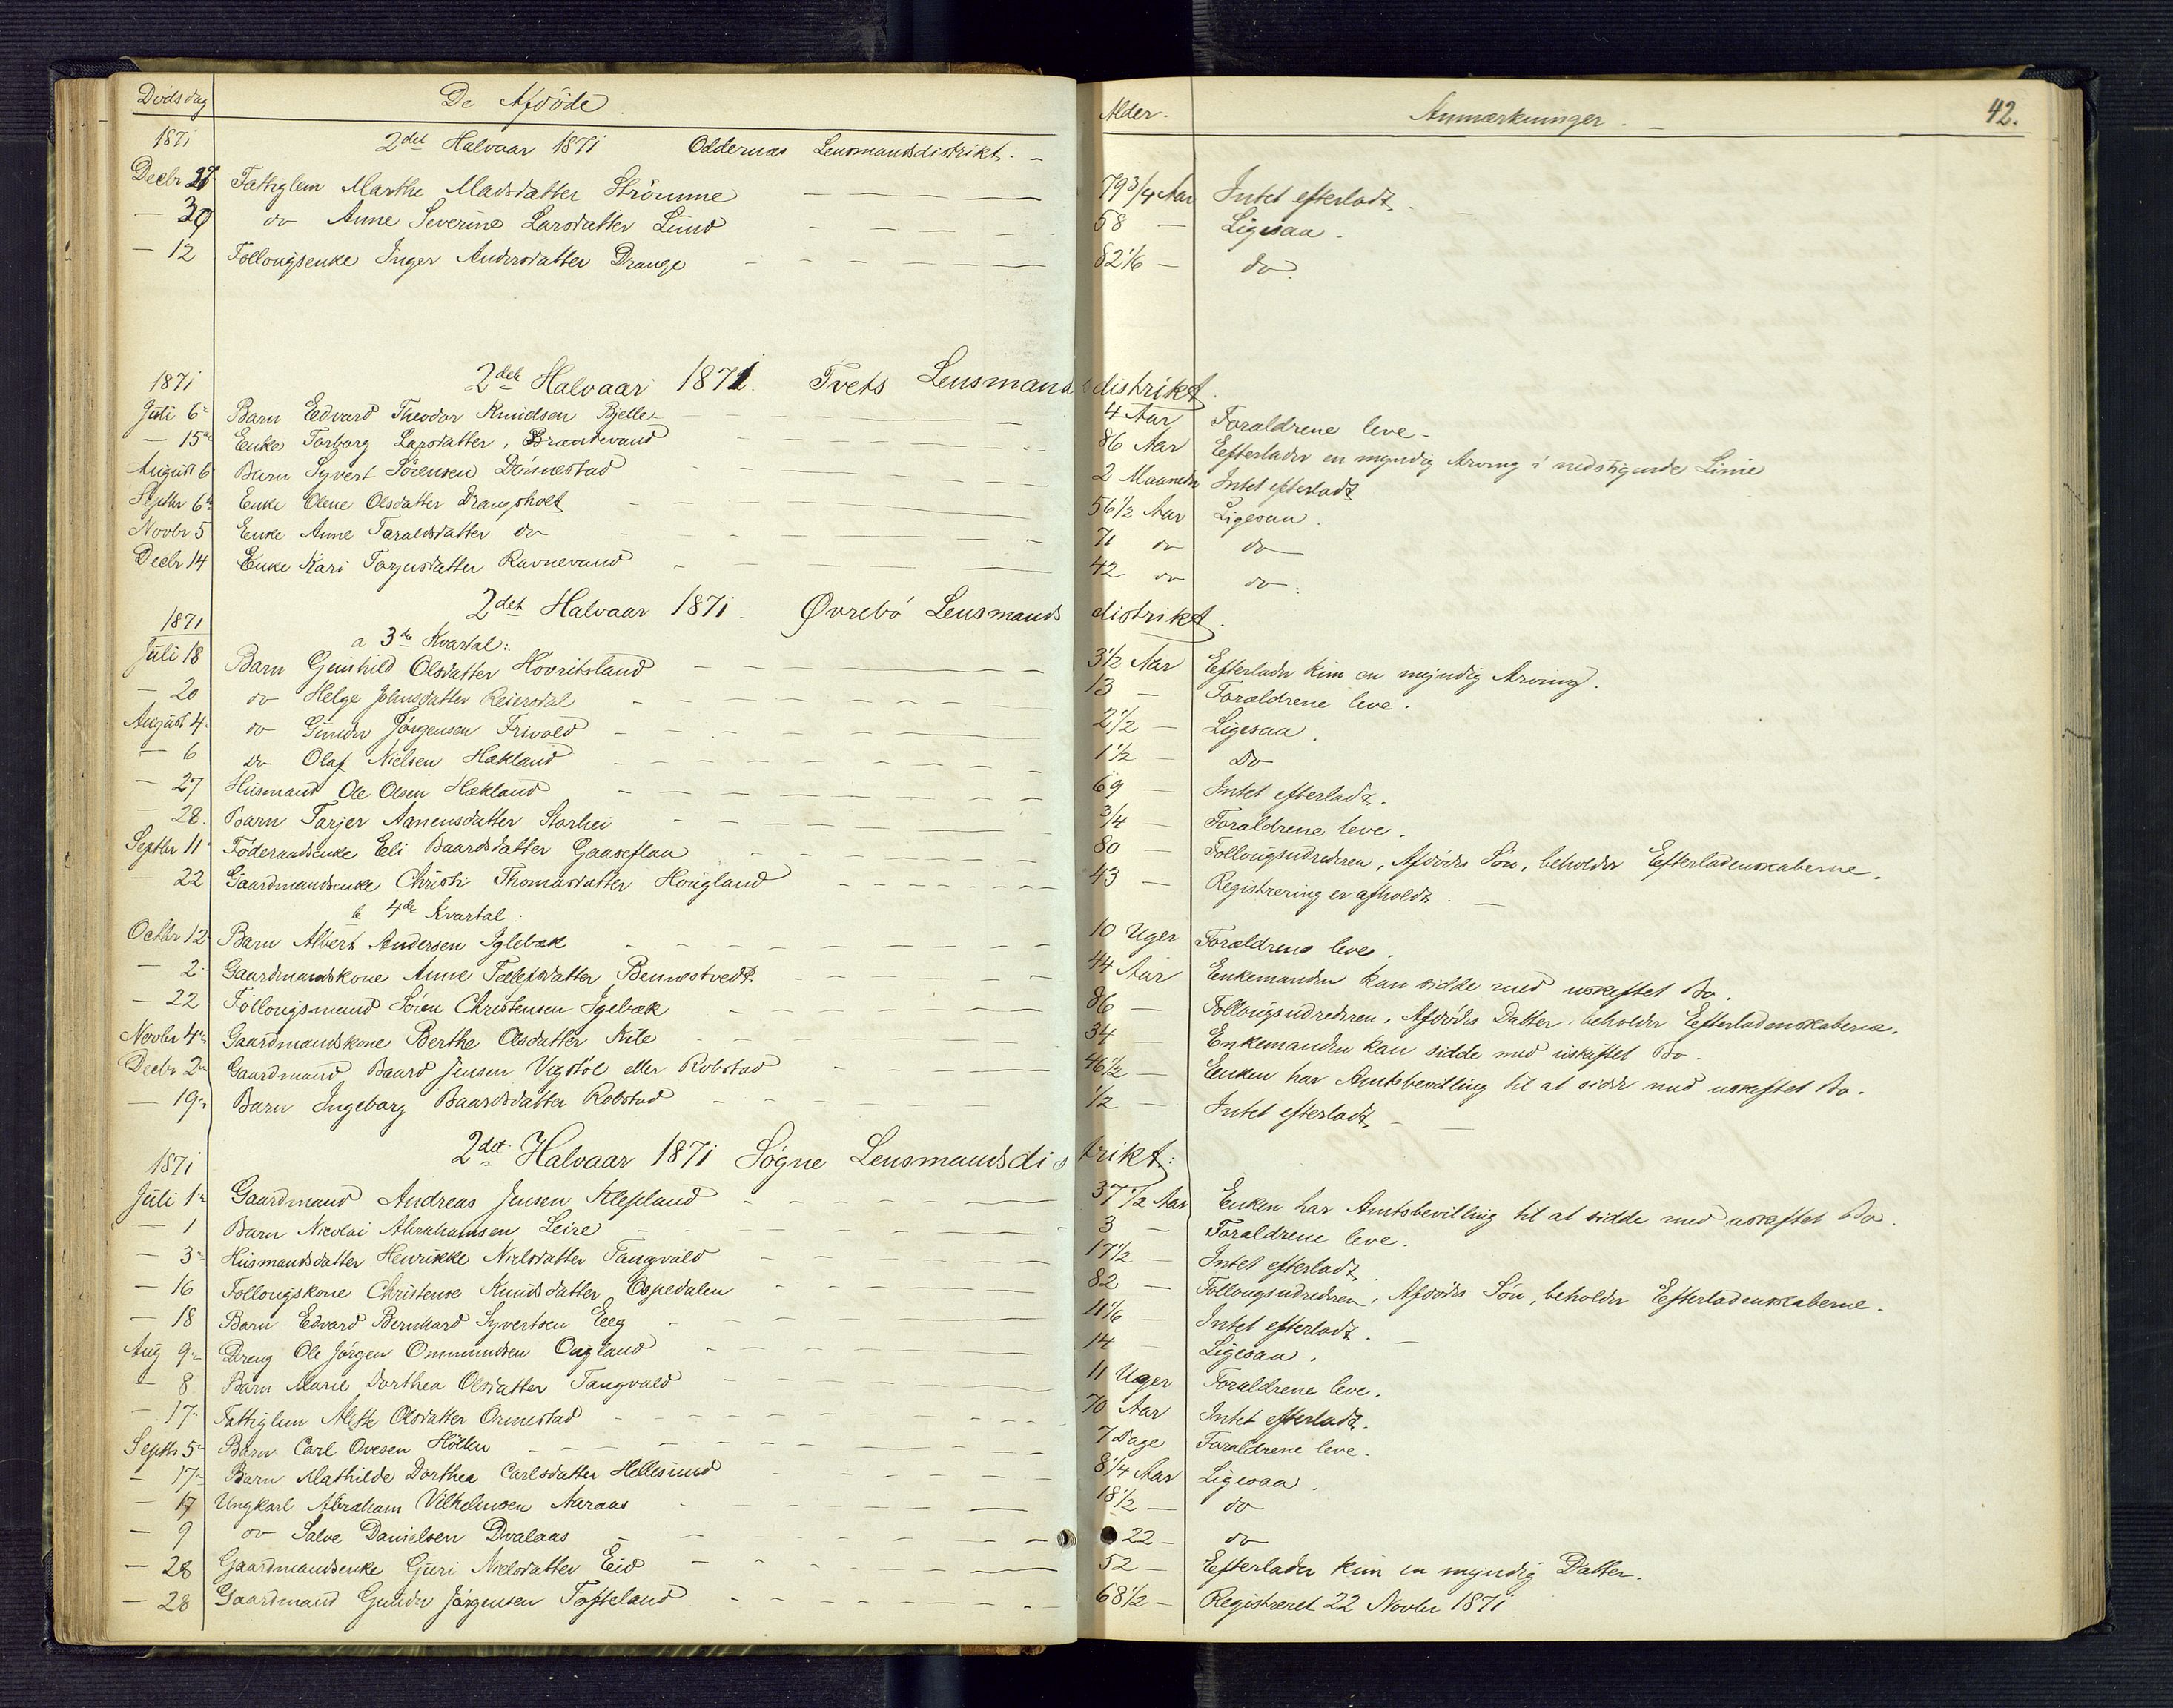 Dödsdag De Afdöde. Alder. Anmærkninger. 42.
1871 2det Halvaar 1871 Oddernæs Lensmandsdistrikt.
Decbr 27 Fattiglem Marthe Madsdatter Strömme 79 3/4 Aar Intet efterladt.
— 30 do Anne Severine Larsdatter Lund 58 — Ligesaa.
— 12 Follougsenke Inger Andersdatter Drange 82 1/6 — do.
1871 2det Halvaar 1871. Tvets Lensmandsdistrikt.
Juli 6 Barn Eedvard Theodor Knudsen Bjelle 4 Aar Forældrene leve.
— 15 Enke Torborg Larsdatter, Brændevand 86 Aar Efterlader en myndig Arving i nedstigende Linie
August 6 Barn Syvert Sörensen Dönnestad 2 Maaneder Intet efterladt
Septbr 6 Enke Olene Olsdatter Drangsholt 56 1/2 Aar Ligesaa.
Novbr 5 Enke Anne Taraldsdatter do 71 do do
Decbr 14 Enke Kari Torjusdatter Ravnevand 42 do do.
1871 2det Halvaar 1871. Øvrebö Lensmandsdistrikt.
a 3die Kvartal:
Juli 18 Barn Gunhild Olsdatter Hovritsland 3 1/2 Aar Efterlader kun en myndig Arving.
— 20 do Helge Johnsdatter Reiersdal 13 — Forældrene leve.
August 4 do Gunder Jörgensen Frivold 2 1/2 — Ligesaa.
— 6 do Olaf Nielsen Hækland 1 1/2 — Do
— 27 Husmand Ole Olsen Hækland 69 — Intet efterladt.
— 28. Barn Tarjer Aanensdatter Storhei 3/4 — Forældrene leve.
Septbr 11 Föderaadsenke Eli Baardsdatter Gaaseflaa 80 — Follougsudrederen, Afdödes Sön, beholder Efterladenskaberne.
— 22 Gaardmandsenke Christi Thomasdatter Hougland 43 — Registrering er afholdt.
b 4de Kvartal:
Octbr 12 Barn Albert Andersen Iglebæk 10 Uger Forældrene leve.
— 2 Gaardmandskone Anne Tellefsdatter Bennestvedt 44 Aar Enkemanden kan sidde med uskiftet Bo.
— 22 Follougsmand Sören Christensen Igebæk 86 — Follougsudrederen, Afdödes Datter, beholder Efterladenskaberne.
Novbr 4 Gaardmandskone Berthe Olsdatter Kile 34 Enkemanden kan sidde med uskiftet Bo.
Decbr 2 Gaardmand Baard Jensen Vegstöl eller Robstad 46 1/2 — Enken har Amtsbevilling til at sidde med uskiftet Bo.
— 19 Barn Ingeborg Baardsdatter Robstad 1/2 — Intet efterladt.
1871 2det Halvaar 1871 Sögne Lensmandsdistrikt:
Juli 1 Gaardmand Andreas Jensen Klepland 37 1/2 Aar Enken har Amtsbevilling til at sidde med uskiftet Bo.
— 1 Barn Nicolai Abrahamsen Leire 3 — Forældrene leve.
— 3 Husmandsdatter Henrikke Nielsdatter Tangvald 17 1/2 — Intet efterladt.
— 16 Follougskone Christense Knudsdatter Ospedalen 82 — Follougsudrederen, Afdödes Sön, beholder Efterladenskaberne.
— 18 Barn Edvard Bernhard Syvertsen Eeg 11 1/6 — Intet efterladt.
Aug 9 Dreng Ole Jörgen Ommundsen Ougland 14 — Ligesaa.
— 8 Barn Marie Dorthea Olsdatter Tangvald 11 Uger Forældrene leve.
— 17 Fattiglem Alette Olsdatter Ormestad 70 Aar Intet efterladt.
Septbr 5 Barn Carl Ovesen Hölten 7 Dage Forældrene leve.
— 17 Barn Mathilde Dorthea Carlsdatter Hellesund 8 1/4 Aar Ligesaa.
— 17 Ungkarl Abraham Vilhelmsen Aaraas 18 1/2 — do
— 9 do Salve Danielsen Dvalaas 22 — do
— 28 Gaardmandsenke Guri Nielsdatter Eid 52 — Efterlader kun en myndig Datter.
— 28 Gaardmand Gunder Jörgensen Tofteland 68 1/2 — Registreret 22 Novbr 1871